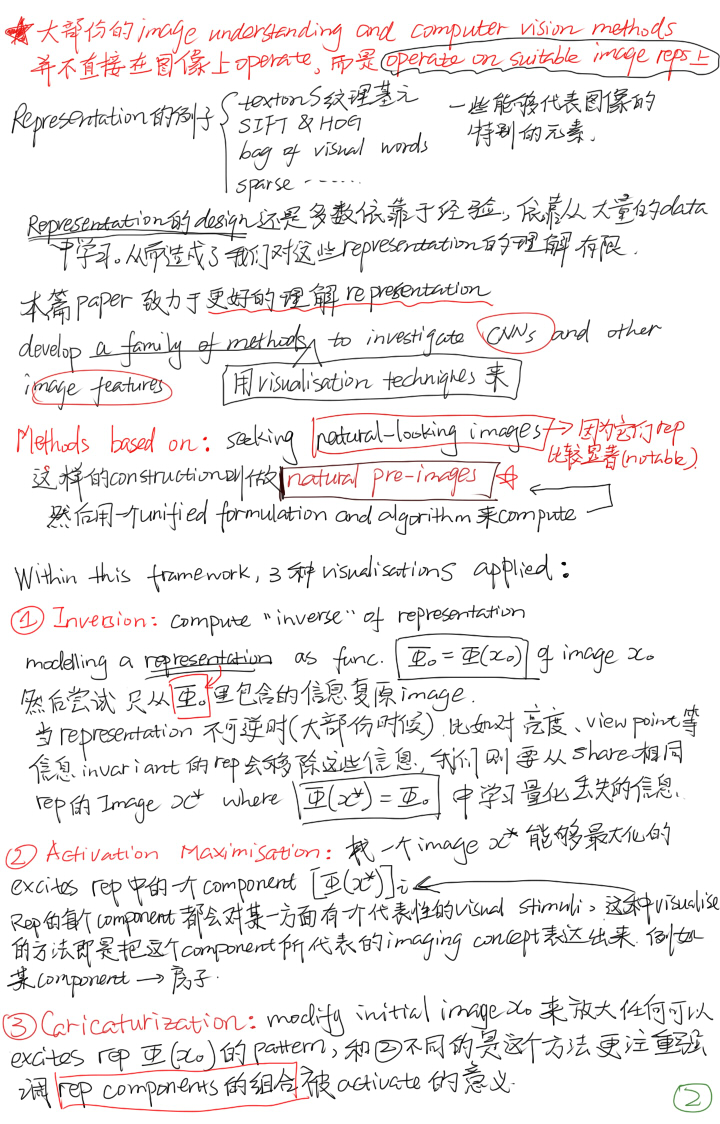 ★ 大部份的image understanding and computer vision methods
并不直接在图像上operate, 而是 operate on suitable image reps上
Representation的例子 { textons纹理基元
SIFT & HOG
bag of visual words
sparse ……
一些能够代表图像的
特别的元素.
Representation的design还是多数依靠于经验, 依靠从大量的data
中学习。从而造成了我们对这些representation的理解有限.
本篇paper 致力于更好的理解representation
develop a family of methods to investigate CNNs and other
image features 用visualisation techniques来
Methods based on: seeking natural-looking images → 因为它们rep
比较显著(notable).
这样的construction叫做 natural pre-images ☆
然后用一个unified formulation and algorithm来compute
Within this framework, 3种visualisations applied:
① Inversion: compute "inverse" of representation
modelling a representation as func. Φ₀ = Φ(x₀) of image x₀
然后尝试 只从Φ₀里包含的信息复原image.
当representation 不可逆时(大部份时候). 比如对 亮度、view point等
信息invariant的rep会移除这些信息, 我们则要从share相同
rep的Image x* where Φ(x*) = Φ₀ 中学习量化丢失的信息.
② Activation Maximisation: 找一个image x* 能够最大化的
excites rep中的一个component [Φ(x*)]i
Rep的每个component都会对某一方面有一个代表性的visual stimuli, 这种visualise
的方法即是把这个component所代表的imaging concept表达出来. 例如
某component → 房子.
③ Caricaturization: modify initial image x₀ 来放大任何可以
excites rep Φ(x₀)的pattern, 和②不同的是这个方法更注重强
调 rep components的组合被activate的意义.
2